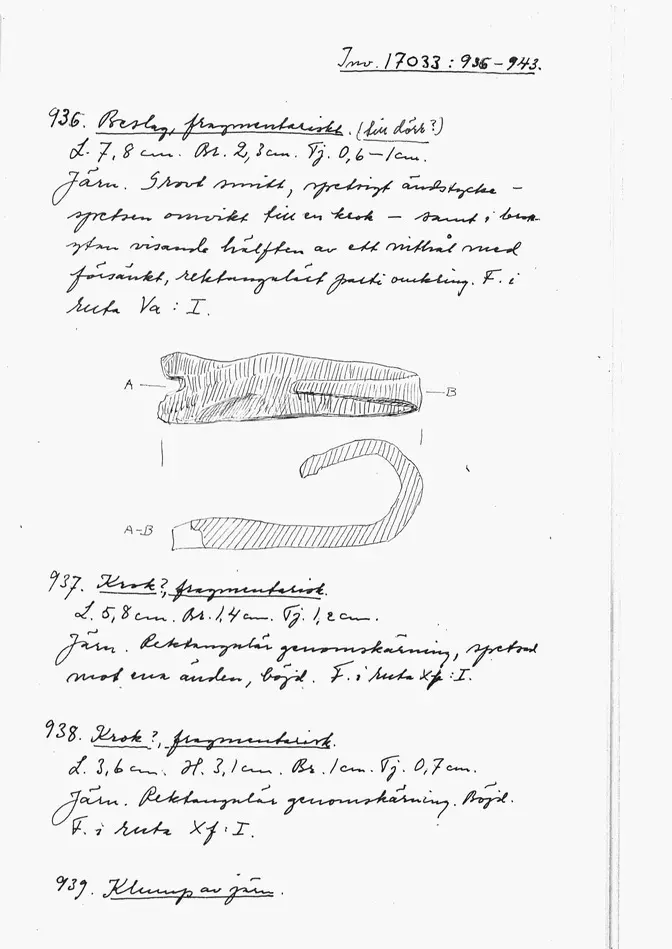 Inv. 17033 : 936-943.
936. Beslag, fragmentariskt. (till dörr?)
L. 7,8 cm. Br. 2,3 cm. Tj. 0,6-1 cm.
Järn. Grovt smitt, spetsigt ändstycke -
spetsen omvikt till en krok - samt i brott-
ytan visande hälften av ett nithål med
försänkt, rektangulärt parti omkring. F. i
ruta Va : I.
A B
A-B
937. Krok?, fragmentarisk.
L. 5,8 cm. Br. 1,4 cm. Tj. 1,2 cm.
Järn. Rektangulär genomskärning, spetsad
mot ena änden, böjd. F. i ruta Xf : I.
938. Krok?, fragmentarisk.
L. 3,6 cm. H. 3,1 cm. Br. 1 cm. Tj. 0,7 cm.
Järn. Rektangulär genomskärning. Böjd.
F. i ruta Xf : I.
939. Klump av järn.